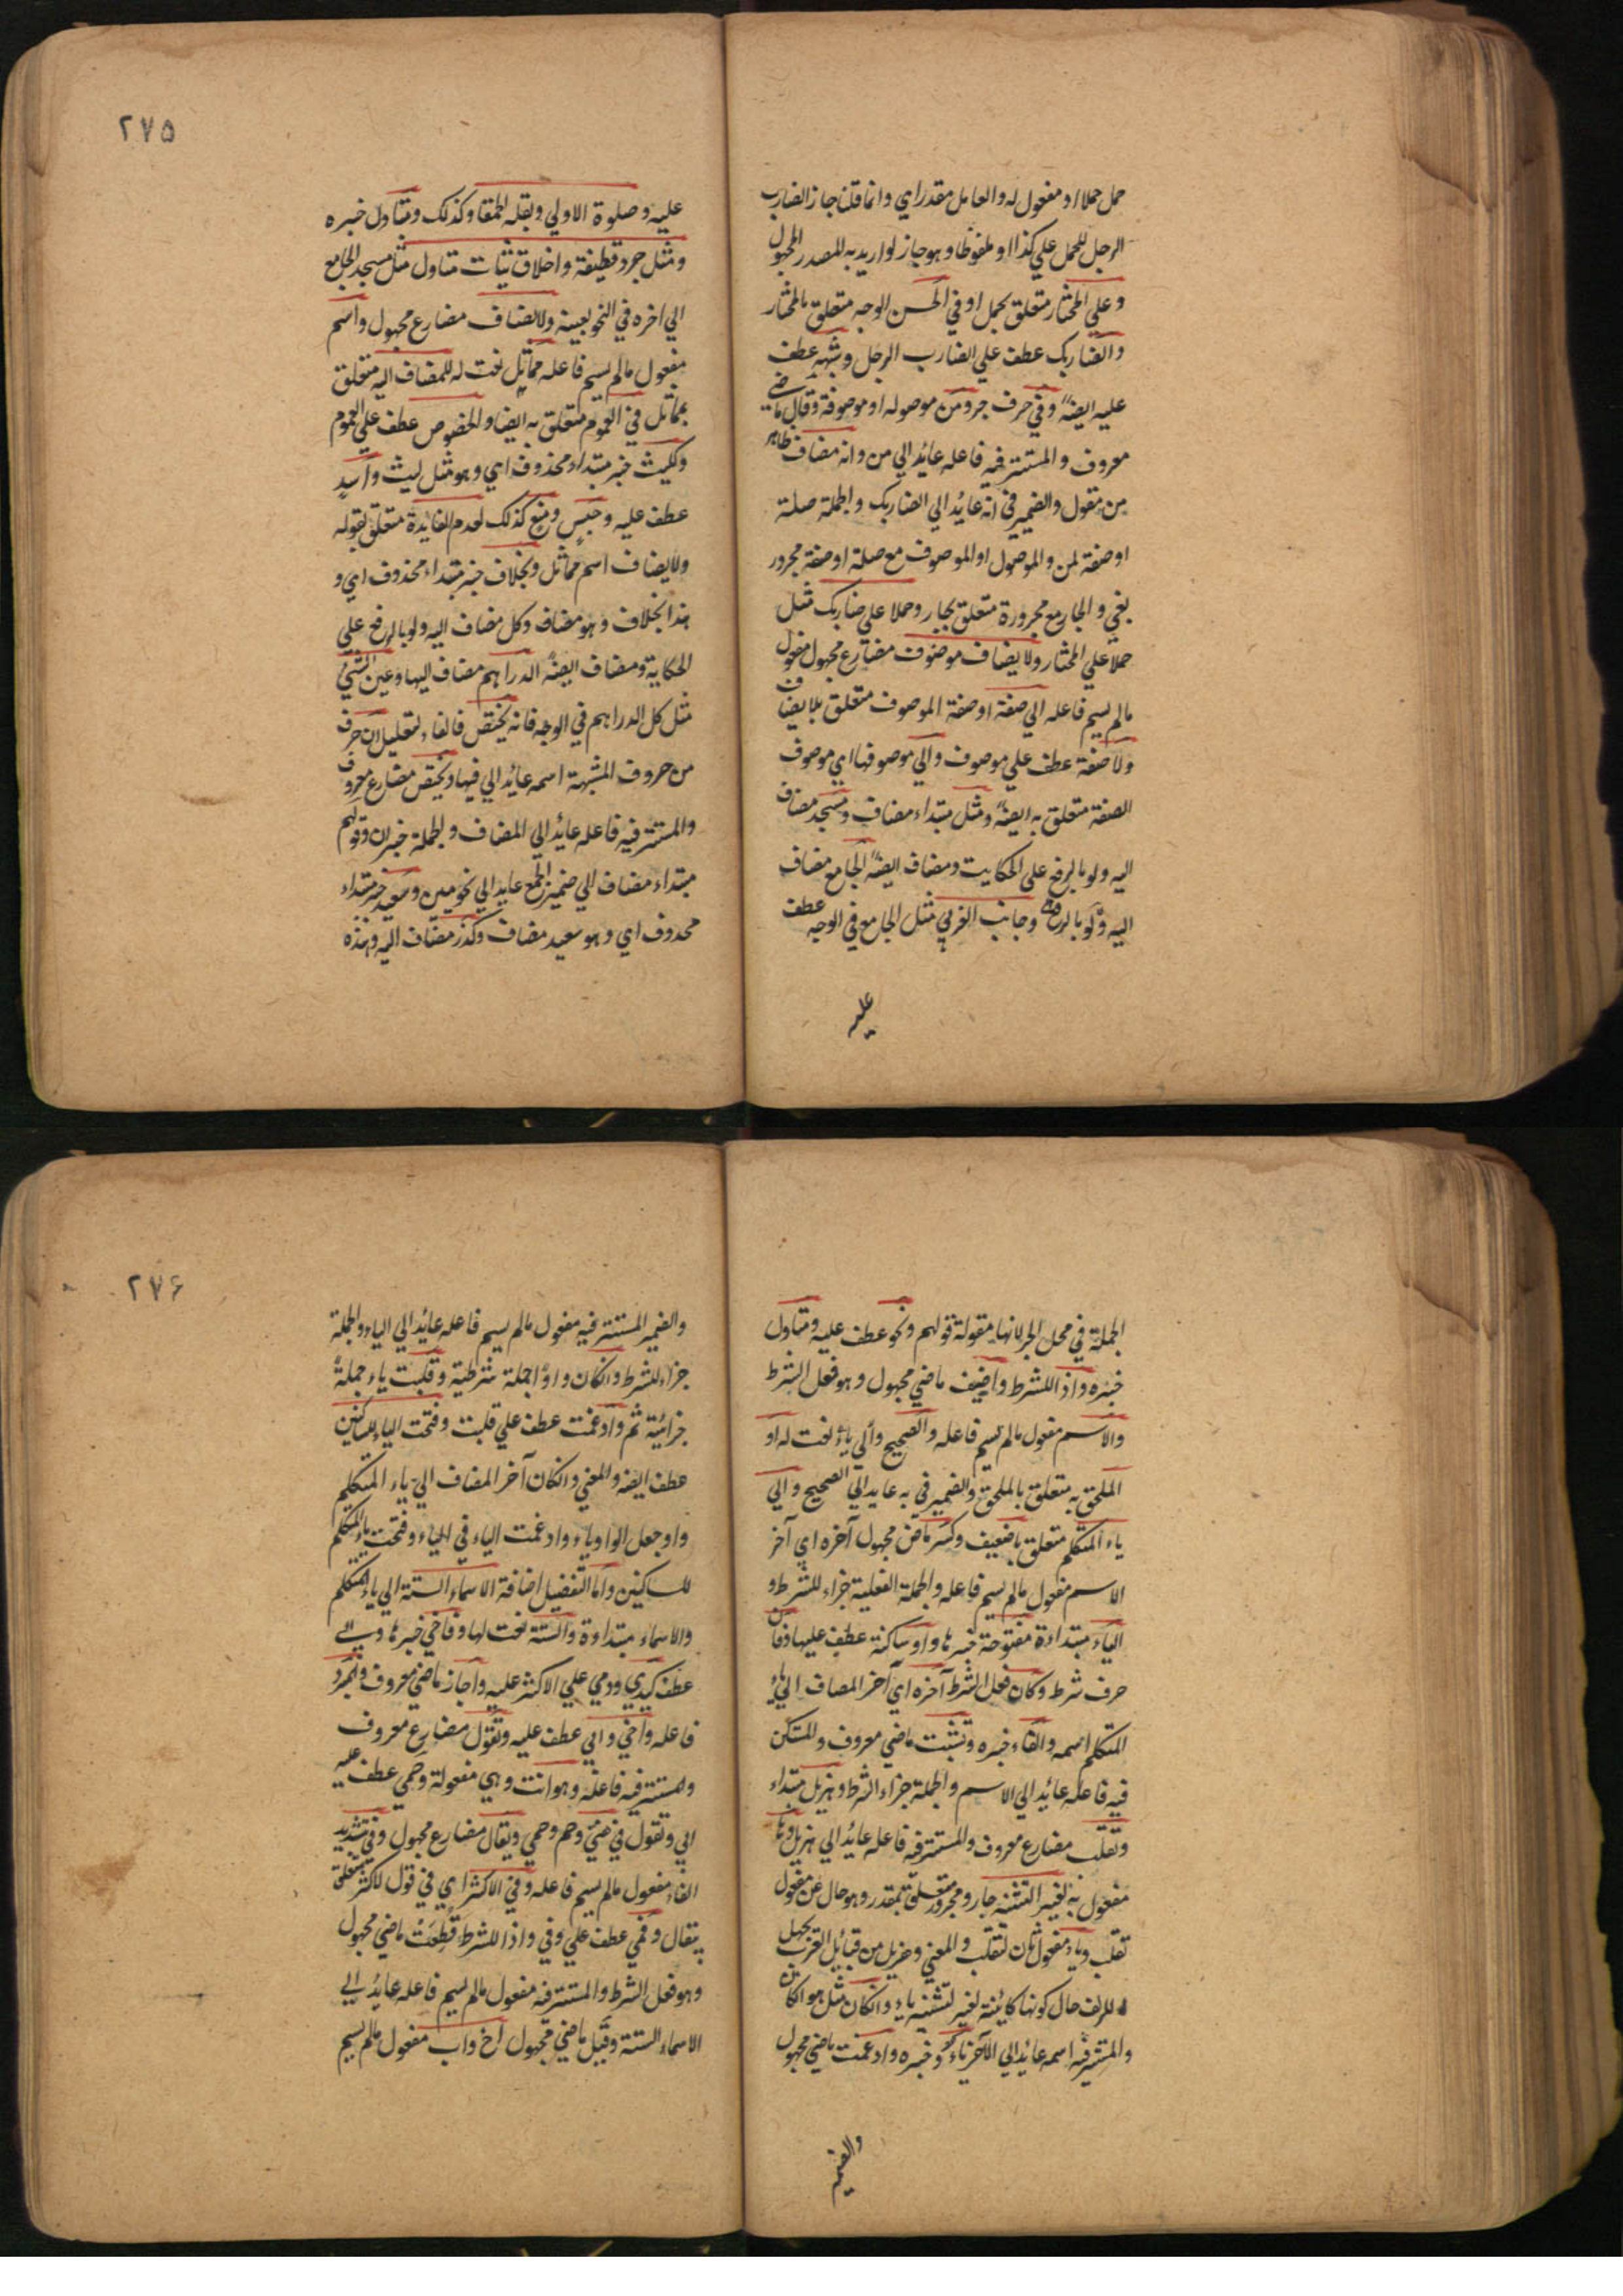 حمل حملا او مفعول له والعامل مقدر اي وانما قلنا جاز الضارب
الرجل للحمل علي كذا او ملفوظا وهو جاز لو اريد به للمصدر المجهول
وعلي المختار متعلق بحمل او في الحسن الوجه متعلق بالمختار
والضاربك عطف علي الضارب الرجل وشبهه عطف
عليه ايضہً وفي حرف جر ومن موصوله او موصوفة وقال ماضي
معروف والمستتر فيه فاعله عائد الي من وانه مضاف ظاهر
من مقول والضمير في انه عائد الي الضاربك والجملة صلة
او صفة لمن والموصول او الموصوف مع صلة او صفة مجرور
بفي والجار مع مجرورة متعلق بجار وحملا علي ضاربك مثل
حملا علي المختار ولا يضاف موصوف مضارع مجهول مفعول
مالم يسم فاعله الي صفة او صفة الموصوف متعلق بلا يضاف
ولا صفة عطف علي موصوف والي موصوفها اي موصوف
الصفة متعلق به ايضہً ومثل مبتداء مضاف ومسجد مضاف
اليه ولو بالرفع علي الحكايت ومضاف ايضہً الجامع مضاف
اليه ولو بالرفع وجانب الغربي مثل الجامع في الوجه عطف
عليه
۲۷۵
عليه وصلوة الاولي وبقلة الحمقا وكذلك ومتاول خبره
ومثل جرد قطيفة واخلاق ثياب متاول مثل مسجد الجامع
الي اخره في النحو بعينه ولا يضاف مضارع مجهول واسم
مفعول مالم يسم فاعله مماثل نعت له للمضاف اليه متعلق
بمماثل في العموم متعلق به ايضا والخصوص عطف علي العموم
وكليث خبر مبتداء محذوف اي وهو مثل ليث واسد
عطف عليه وحبس ومنع كذلك لعدم الفايدة متعلق بقوله
ولا يضاف اسم مماثل وبخلاف خبر مبتداء محذوف اي و
هذا بخلاف وهو مضاف وكل مضاف اليه ولو بالرفع علي
الحكاية ومضاف ايضہً الدراهم مضاف اليها وعين الشئي
مثل كل الدراهم في الوجه فانه يختص فالفاء لتعليل ان حرف
من حروف المشبهة اسمه عائد الي فيها ويختص مضارع معروف
والمستتر فيه فاعله عائد الي المضاف والجملة خبر ان وقولهم
مبتداء مضاف الي ضمير الجمع عايد الي نحويين وسعيد خبر مبتداء
محذوف اي وهو سعيد مضاف وكذر مضاف اليه وهذه
الجملة في محل الجر لانها مقولة قولهم ونحو عطف عليه ومتاول
خبره واذا للشرط واضيف ماضي مجهول وهو فعل الشرط
والاسم مفعول مالم يسم فاعله والصحيح والي ياء نعت له او
الملحق به متعلق بالملحق والضمير في به عايد الي الصحيح والي
ياء المتكلم متعلق باضيف وكسر ماض مجهول آخره اي آخر
الاسم مفعول مالم يسم فاعله والجملة الفعلية جزاء للشرط و
الياء مبتداءة مفتوحة خبرها او ساكنة عطف عليها فان
حرف شرط وكان فعل الشرط آخره اي آخر المضاف الي ياء
المتكلم اسمه والفاء خبره وتثبت ماضي معروف والمستكن
فيه فاعله عائد الي الاسم والجملة جزاء الشرط وهزيل مبتداء
وتقلب مضارع معروف والمستتر فيه فاعله عائد الي هزيل وها
مفعول به لغير التثنية جار ومجرور متعلق بمقدر وهو حال عن مفعول
تقلب وياء مفعول ثان لتقلب والمعني وهزيل من قبائل العرب يجعل
الالف حال كونها كاينة لغير التثنية ياء وان كان مثل هو الكاين
والمستتر فيه اسمه عائد الي الآخر ياء وخبره وادغمت ماضي مجهول
والضمير
۲۷۶
والضمير المستتر فيه مفعول مالم يسم فاعله عائد الي الياء والجملة
جزاء للشرط وان كان واوًا جملة شرطية وقلبت ياء جملةً
جزائية ثم وادغمت عطف علي قلبت وفتحت الياء للساكنين
عطف ايضہ والمعني وان كان آخر المضاف الي ياء المتكلم
واوجعل الواو ياء وادغمت الياء في الياء وفتحت ياء المتكلم
للساكنين واما التفضيل اضافة الاسماء الستة الي ياء المتكلم
والاسماء مبتداءة والستة نعت لها وفاخي خبرها وابي
عطف كيدي ودمي علي الاكثر عليه واجاز ماضي معروف والمبرد
فاعله واخي وابي عطف عليه وتقول مضارع معروف
والمستتر فيه فاعله وهو انت وهي مفعولة وحمي عطف عليه
ابي وتقول في هني وحم وحمي ويقال مضارع مجهول وفي بتشديد
الفاء مفعول مالم يسم فاعله وفي الاكثر اي في قول الاكثر متعلق
بيقال وفمي عطف علي وفي واذا للشرط قطعت ماضي مجهول
وهو فعل الشرط والمستتر فيه مفعول مالم يسم فاعله عايد الي
الاسماء الستة وقيل ماضي مجهول اخ واب مفعول مالم يسم